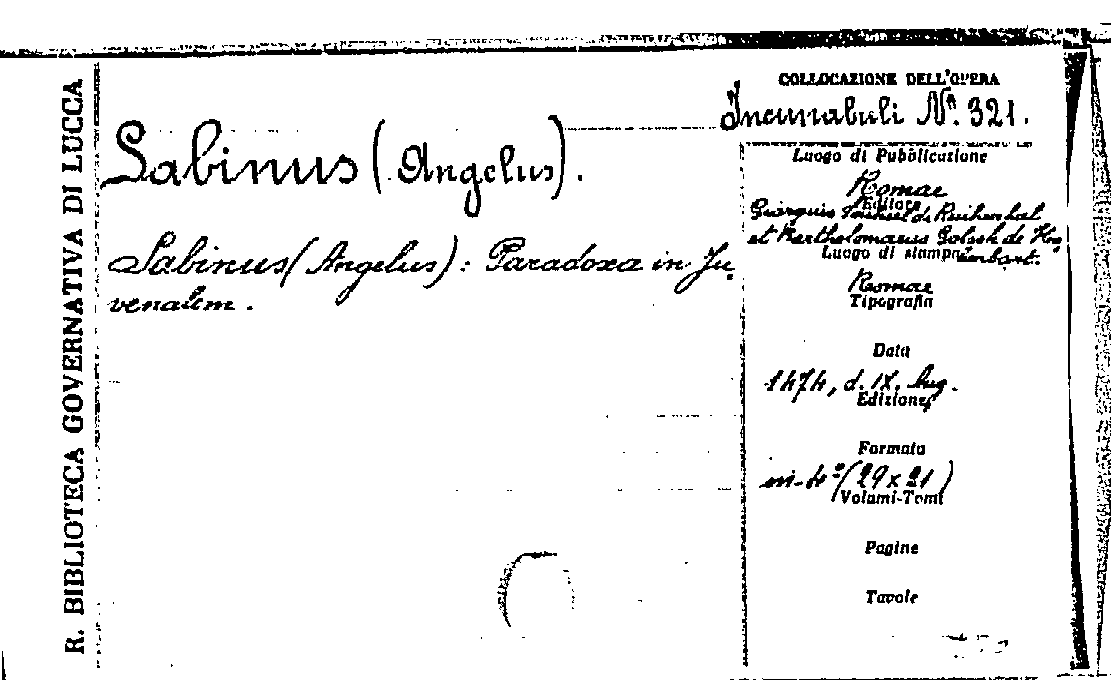 R. BIBLIOTECA GOVERNATIVA DI LUCCA
Sabinus (Angelus).
Sabinus (Angelus): Paradoxa in Ju
venalem.
COLLOCAZIONE DELL'OPERA
Incunabuli Nº. 321.
Luogo di Pubblicazione
Romae
Editore
Georgius de
et Bartholomaeus Golsch de
Luogo di stampa
Romae
Tipografia
Data
1474, d. IX. Aug.
Edizione
Formato
in-4º (29 x 21)
Volumi-Tomi
Pagine
Tavole